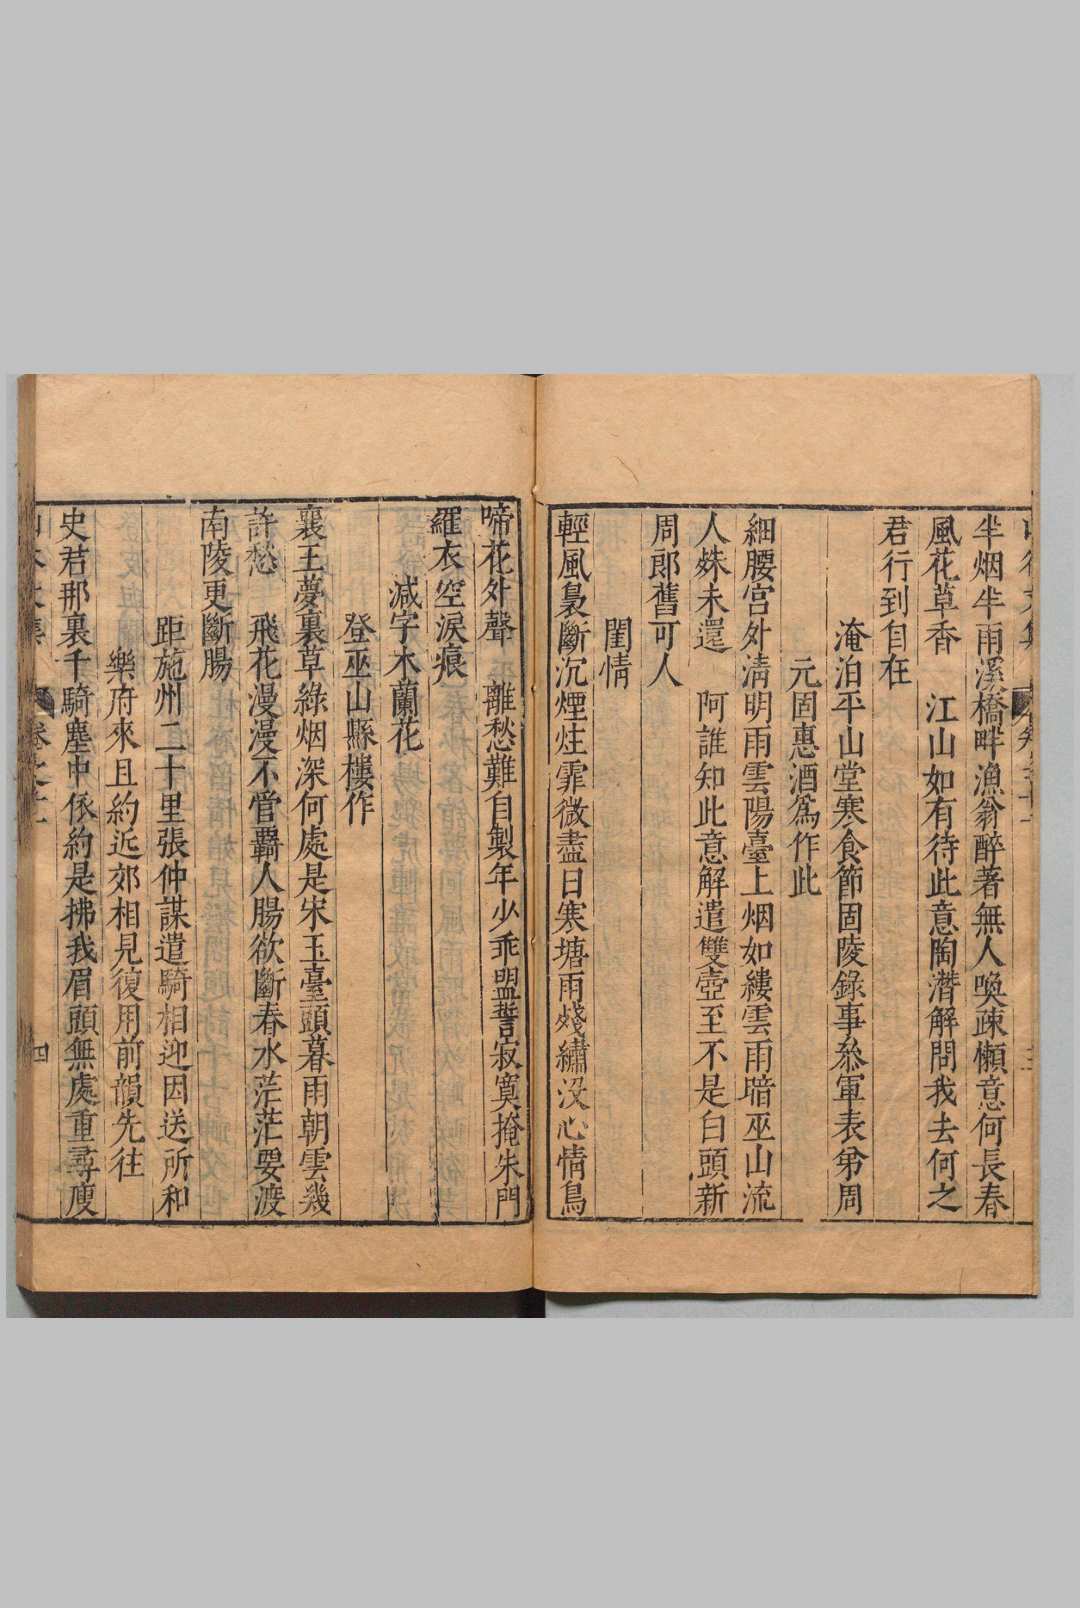 半烟半雨溪橋畔漁翁醉著無人喚疎懶意何長春
風花草香　江山如有待此意陶潛解問我去何之
君行到自在
淹泊平山堂寒食節固陵錄事叅軍表弟周
元固惠酒爲作此
細腰宮外淸明雨雲陽臺上烟如縷雲雨暗巫山流
人殊未還　阿誰知此意解遣雙壺至不是白頭新
周郎舊可人
閨情
輕風裊斷沉煙炷霏微盡日寒塘雨殘繡没心情鳥
啼花外聲　離愁難自製年少乖盟誓寂寞掩朱門
羅衣空淚痕
減字木蘭花
登巫山縣樓作
襄王夢裏草綠烟深何處是宋玉臺頭暮雨朝雲幾
許愁　飛花漫漫不管羇人腸欲斷春水茫茫要渡
南陵更斷腸
距施州二十里張仲謀遣騎相迎因送所和
樂府來且約近郊相見復用前韻先往
史君那裏千騎塵中依約是拂我眉頭無處重尋庾
卷之十一
四